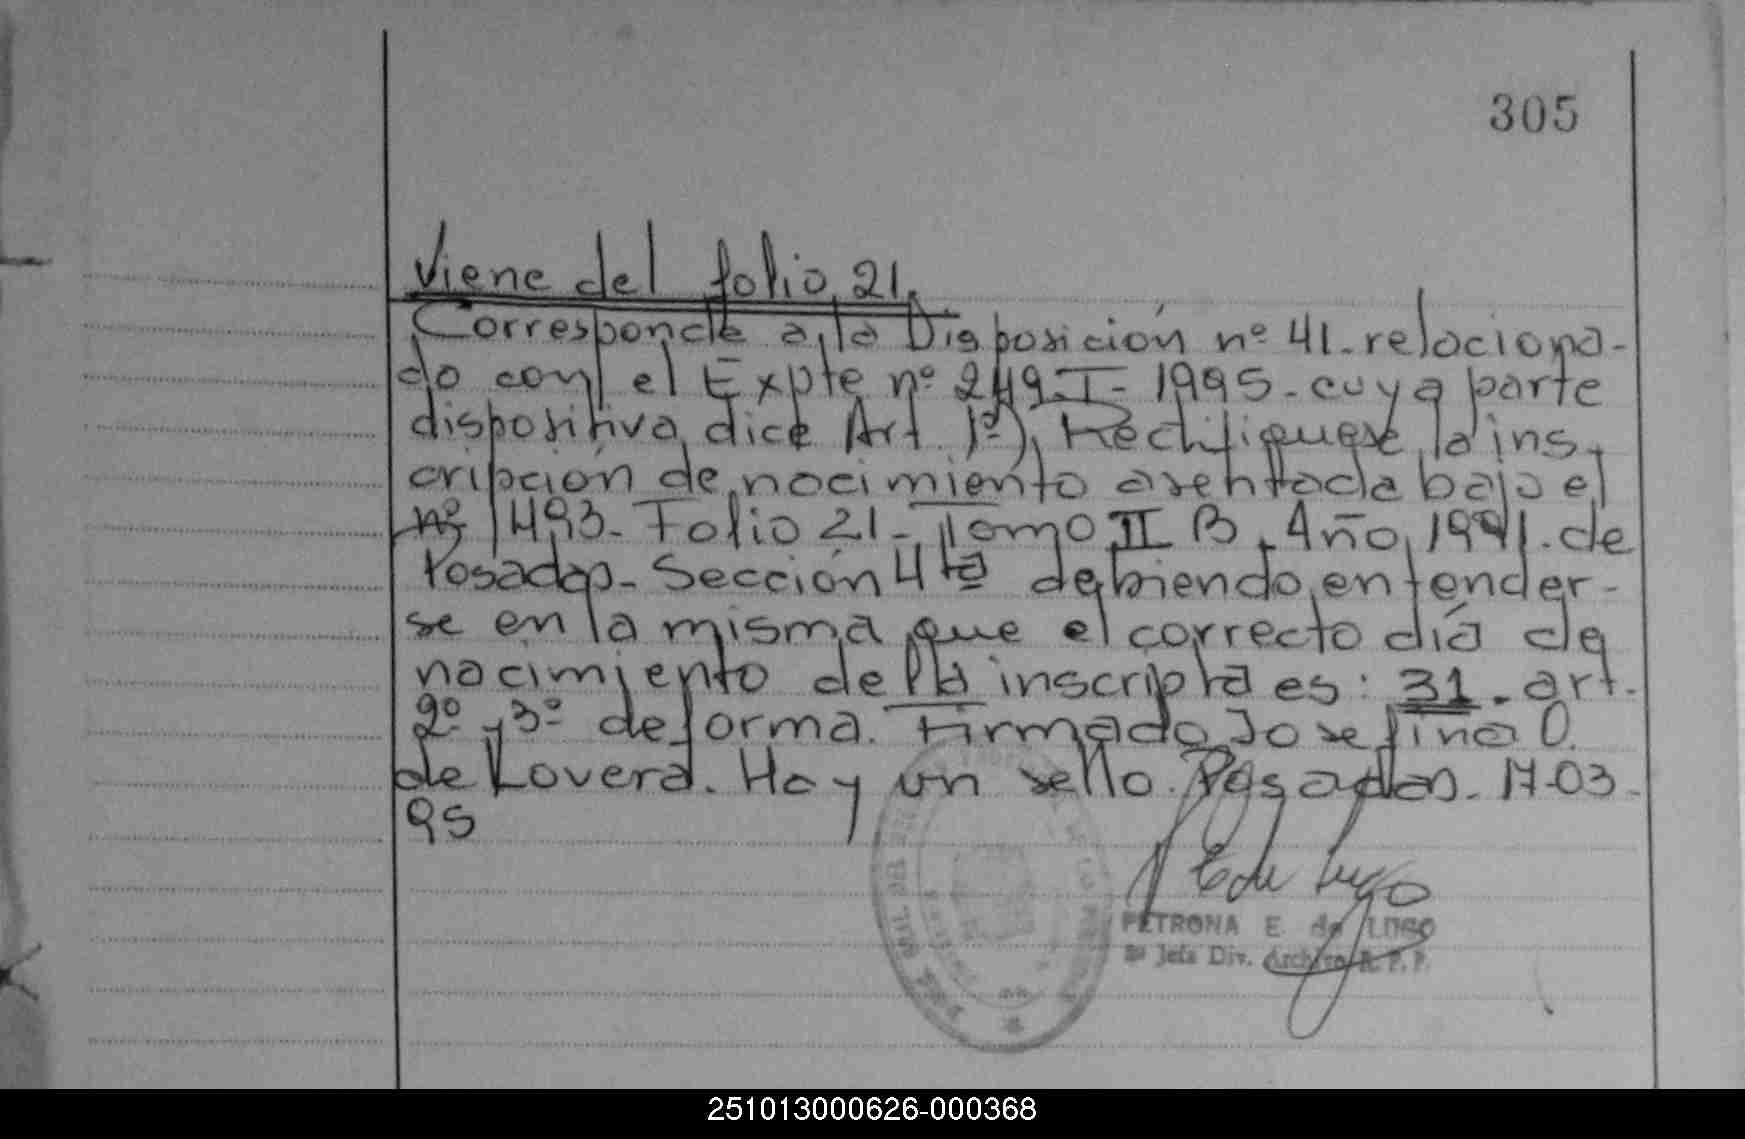 305
Viene del folio 21.
Corresponde a la Disposición nº 41. relaciona-
do con el Expte nº 249-I-1995. cuya parte
dispositiva dice Art 1º) Rectifiquese la ins-
cripción de nacimiento asentada bajo el
nº 1493- Folio 21- Tomo II B. Año 1991. de
Posadas- Sección 4ta debiendo entender-
se en la misma que el correcto día de
nacimiento de la inscripta es: 31. art.
2º y 3º de forma. Firmado Josefina O.
de Lovera. Hay un sello. Posadas. 17-03-
95
PETRONA E. de LUGO
Jefa Div. Archivo R. P. P.
251013000626-000368